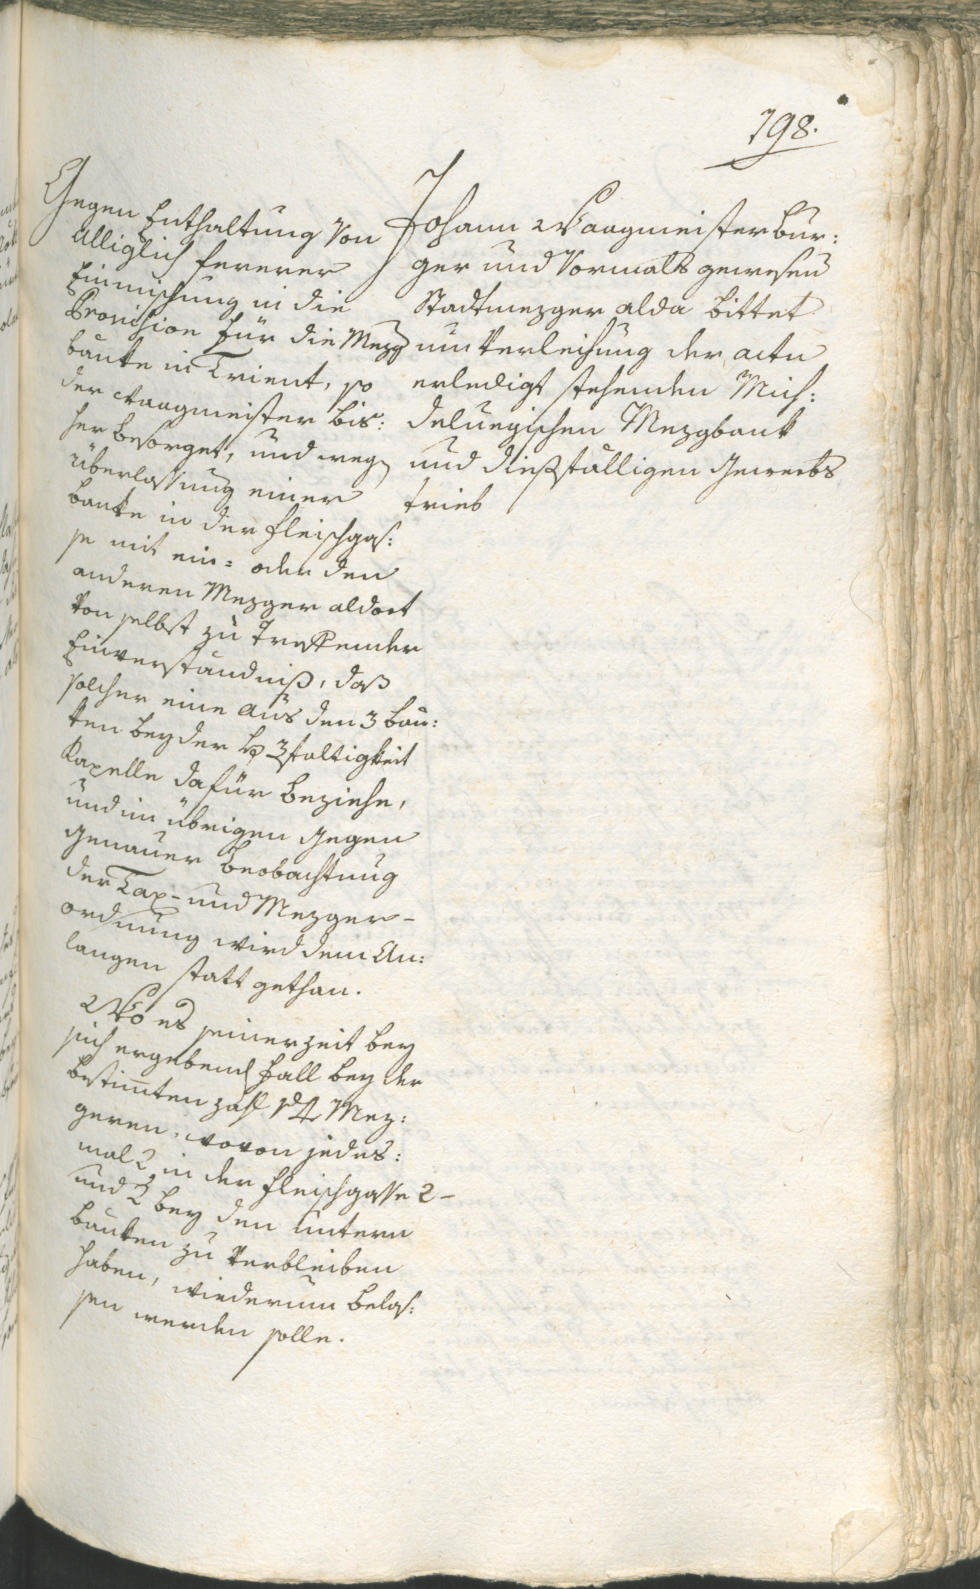 198.
Gegen Enthaltung von
alliglich fernerer
Einmischung in die
Provision für die Mezg
bänke in Trient, so
der Waagmeister bis:
her besorget, und wegen
überlassung einer
bankh in der Fleischgas:
se mit ein= oder den
anderen Mezger aldort
von selbst zu treffender
Einverständniß, daß
solcher eine aus den 3 bän:
ken bey der 3faltigkeit
Kapelle dafür beziehe,
und im übrigen gegen
genauer Beobachtung
der Tax- und Mezger-
ordnung wird dem An:
langen statt gethan.
Wo es seiner zeit bey
sich ergebend Fall bey der
bestimten zahl Mez:
geren, wovon jedes:
mal 2 in der Fleischgasse 2-
und 2 bey den untern
bänken zu verbleiben
haben, wiederum belas:
sen werden solle.
Johann Waagmeister bur:
ger und vormals gewesen
Stadtmezger alda bittet
um verleihung der actu
erledigt stehenden Mich:
deluegischen Mezgbank
und dießfälligen Gewerbs
trieb